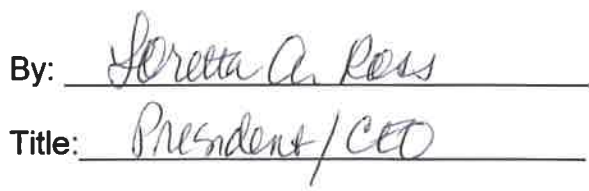 By: Loretta A. Ross
Title: President/CEO